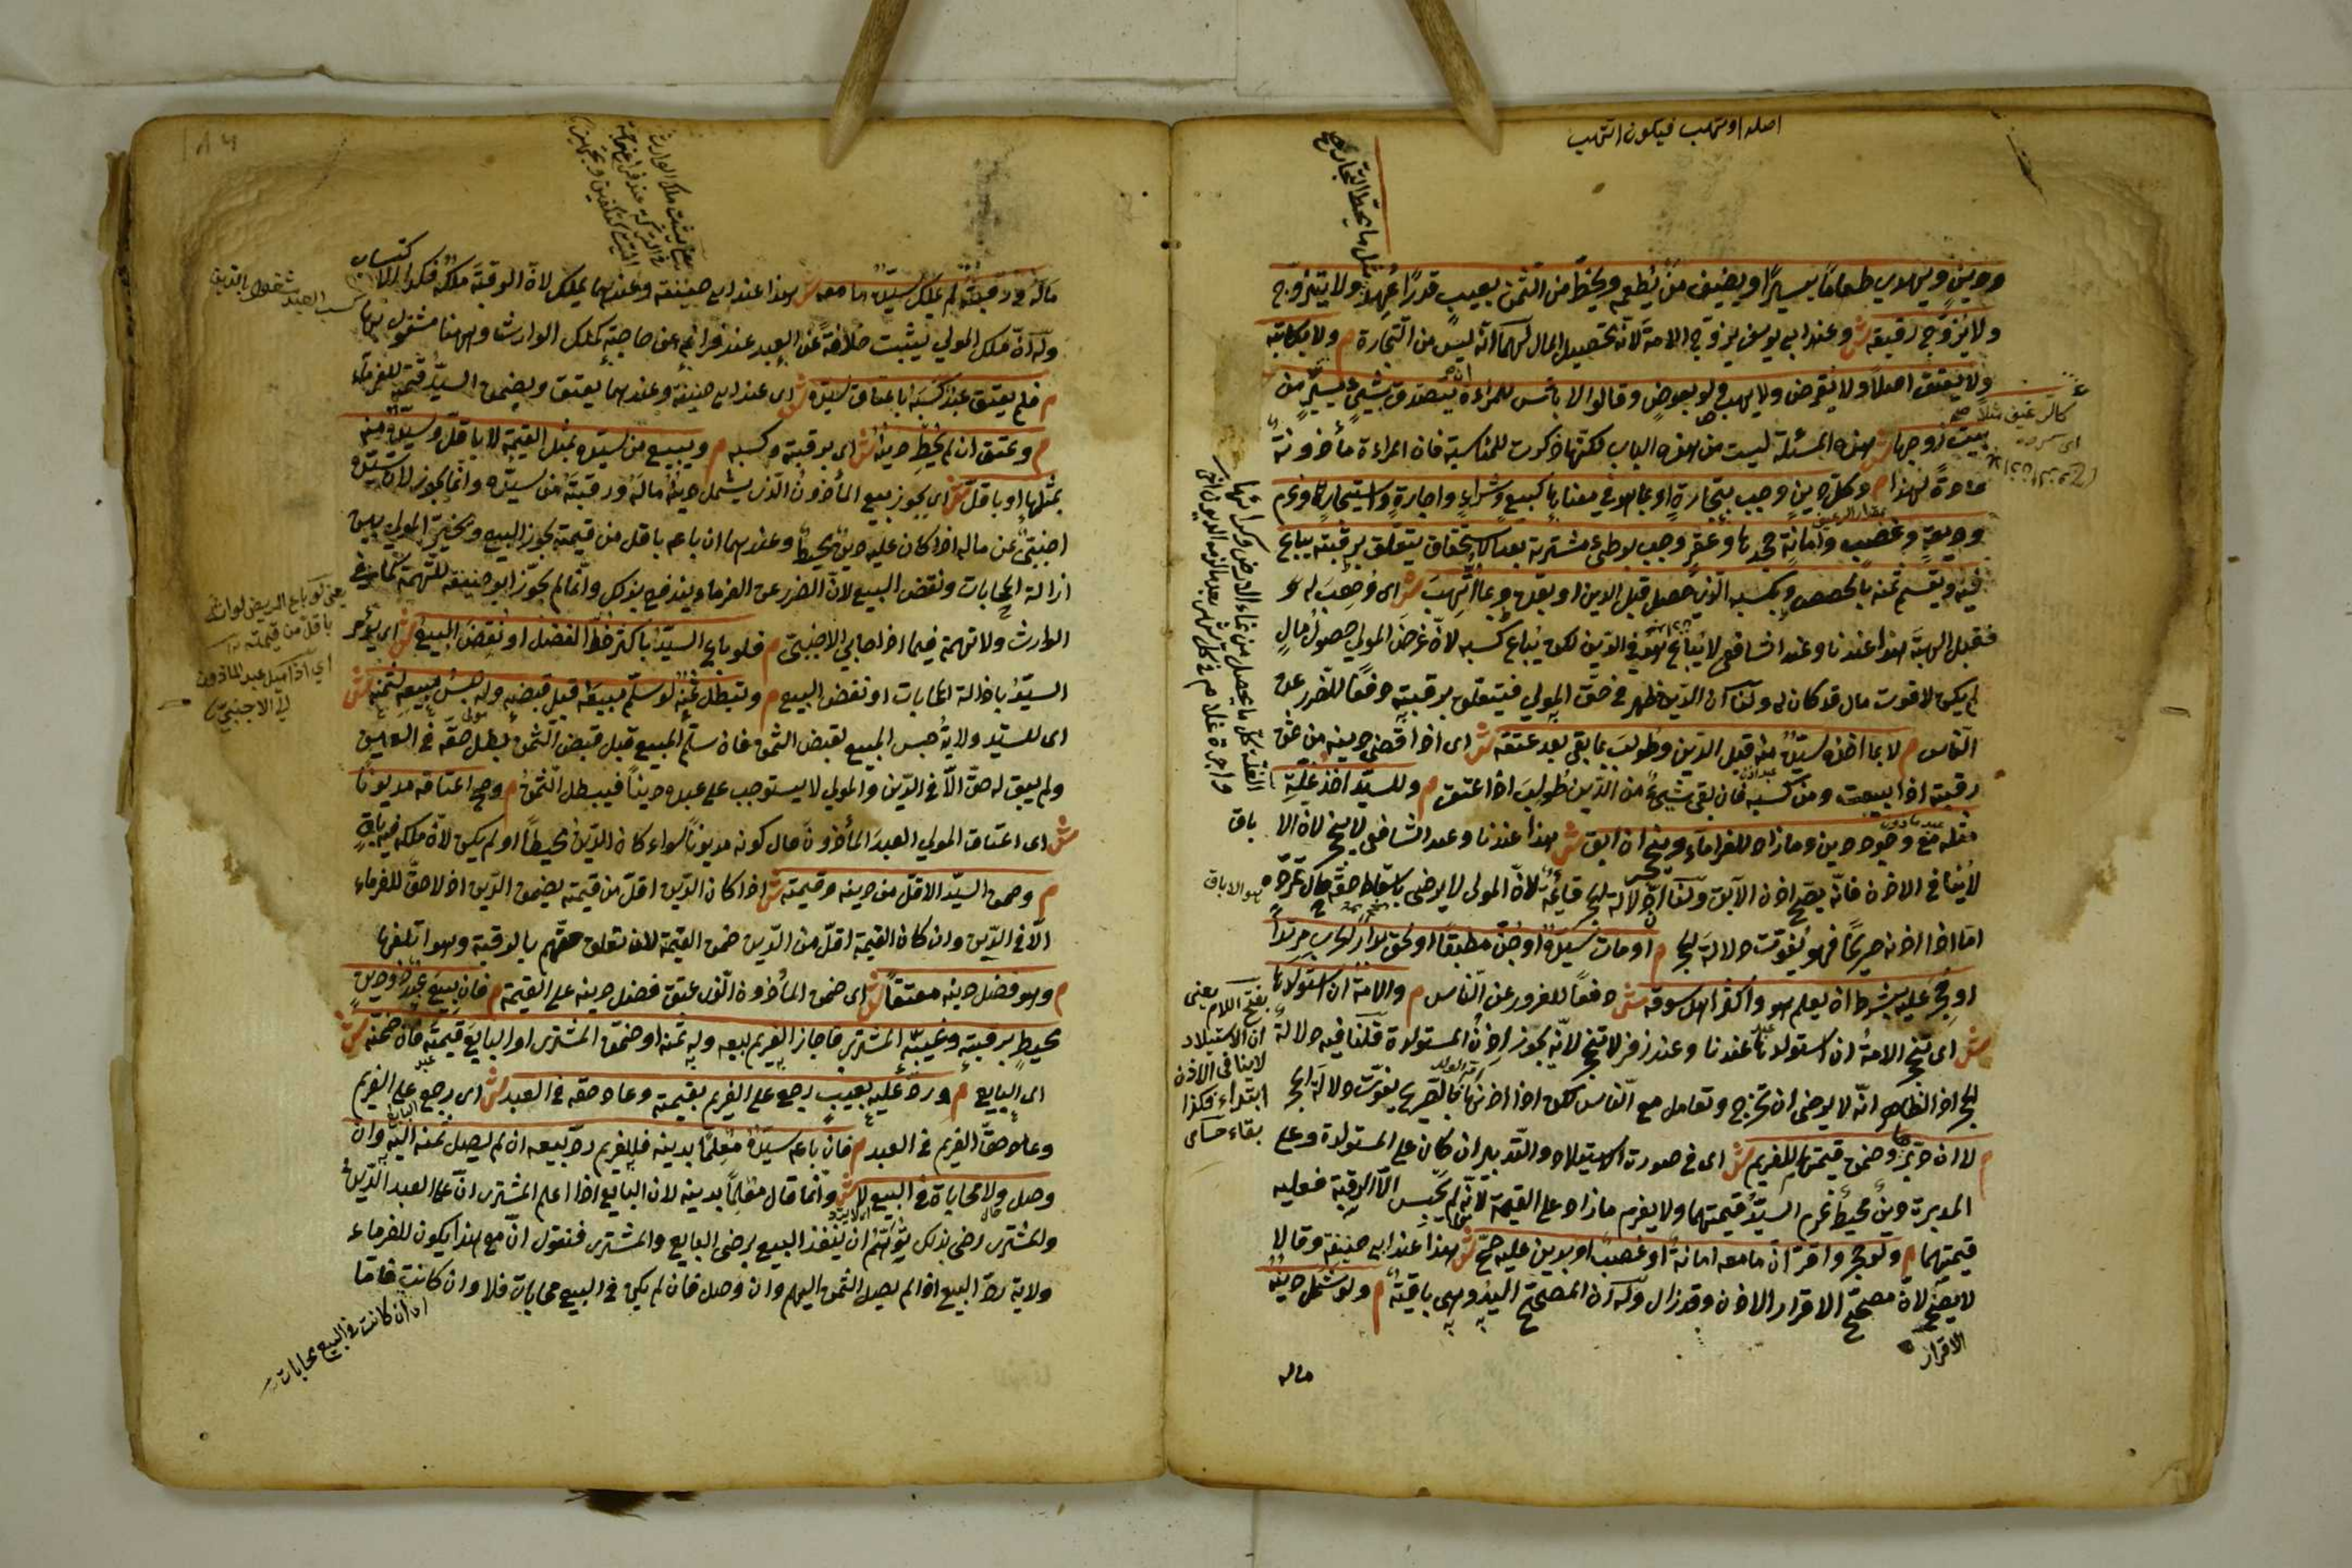 اصله اوتهب فيكون اتهب
مثل ما يحط التجار
ودينٍ ويهدي طعامًا يسيرًا ويضيف من يُطعمه ويحطّ من الثمن بعيبٍ قدرًا عُهِد ولا يتزوّج
ولا يُزوّج رقيقه ش وعند ابي يوسف يزوّج الامة لانّه تحصيل المال لهما انّه ليس من التجارة م ولا يكاتبه
ولا يُعتق اصلًا ولا يُقرض ولا يهب ولو بعوضٍ وقالوا لا بأس للمراءة ان تتصدّق بشيءٍ يسيرٍ من
بيت زوجها ش هذه المسئلة ليست من هذه الباب لكنّها ذكرت للمناسبة فان المراءة مأذونةٌ
عادةً لهذا م وكلّ دينٍ وجب بتجارةٍ او بما هو في معناها كبيعٍ وشراءٍ واجارةٍ واستيجارٍ وغرم
وديعةٍ وغصبٍ وامانةٍ جحدها وعقرٍ وجب بوطىء مشترية بعد الاستحقاق يتعلّق برقبته يباع
فيه ويقسم ثمنه بالحصص وبكسبه الذي حصل قبل الدين او بعده وبما اتّهب ش اى وُهِب له و
فقبل الهبة هذا عندنا وعند الشافعي لا يُباع هو في الدين لكن يُباع كسبه لانّ غرض المولى حصول مالٍ
لم يكن لا فوت مال قد كان له ولنا ان الدين ظهر في حقّ المولى فيتعلق برقبته دفعًا للضرر عن
الناس م لا بما اخذه سيّده منه قبل الدين وطولب بما بقى بعد عتقه ش اى اذا قضى دينه من ثمن
رقبته اذا بيعت ومن كسبه فان بقى شيءٌ من الدين طولب اذا اعتق م وللسيّد اخذ غلّة
مثله مع وجود دين وما زاد للغرماء وينحجر ان ابق ش هذا عندنا وعند الشافعي لا ينحجر لان الا باق
لا يُنافي الاذن فانّه يصحّ اذن الآبق ولنا انّ دلالة الحجر قايمةٌ لانّ المولى لا يرضى باسقاط حقّه حال تمرّده
امّا اذا اذنه صريحًا فهو يُفوّت دلالة الحجر م او مات سيّده او جُنّ مطبقًا او لحق بدار الحرب مرتدًا
او حجر عليه بشرط ان يعلم هو واكثر اهل سوقه ش دفعًا للغرور عن الناس م والامة ان استولدها
ش اى تنحجر الامة ان استولدها عندنا وعند زفر لا تنحجر لانّه يجوز اذن المستولدة قلنا فيه دلالة
الحجر اذ الظاهر انّه لا يرضى ان تخرج وتعامل مع الناس لكن اذا اذنها فالتصريح يفوّت دلالة الحجر
م لا ان دبّرها وضمن قيمتهما للغريم ش اى في صورت الاستيلاد والتدبير ان كان على المستولدة وعلى
المدبرة دينٌ محيطٌ غرم السيّد قيمتهما ولا يغرم ما زاد على القيمة لانّه لم يحبس الّا الرقبة فعليه
قيمتهما م ولو حجر واقرّ انّ ما معه امانةً او غصبًا او بدين عليه صحّ ش هذا عند ابي حنيفة وقالا
لا يصحّ لانّ مصحّح الاقرار الاذن وقد زال وله ان المصحّح اليد وهى باقيةٌ م ولو شمل دينُه
الاقرار
ماله
هو الاباق
بفتح اللام يعني
ان الاستيلاد
لا ينافى الاذن
ابتداء فكذا
بقاء حسامى
مالَهُ ورقبتَهُ لم يملك سيّدُه ما معه ش هذا عند ابي حنيفة وعندهما يملك لانّ الرقبة ملكُه فكذا الاكتساب
وله انّ ملك المولى يثبت خلافةً عن العبد عند فراغه عن حاجته كملك الوارث وههنا مشغول بها
م فلم يعتق عبد كسبه باعتاق سيّده ش اى عند ابي حنيفة وعندهما يُعتق ويضمن السيّد قيمته للغرماء
م وعتق ان لم يُحِط دينُه ش اى برقبته وكسبه م ويبيع من سيّده بمثل القيمة لا باقلّ وسيّده منه
بمثلها او باقلّ ش اى يجوز بيع المأذون الّذى يشمل دينُه مالَه ورقبتَه من سيّده وانّما يجوز لان سيّده
اجنبيٌ عن ماله اذا كان عليه دينٌ محيطٌ وعندهما ان باعه باقل من قيمته يجوز البيع ويخيّر المولى بين
ازالة المحابات ونقض البيع لان الضرر عن الغرماء يندفع بذلك وانّما لم يجوّز ابو حنيفة للتهمة كما في
الوارث ولا تهمة فيما اذا حابى الاجنبيّ م فلو باع السيّد باكثر حطّ الفضل او نُقِض البيع ش اى يؤمر
السيّد باذالة المحابات او نقض البيع م وتبطل ثمنه لو سلّم مبيعه قبل قبضه وله حبس مبيعه لثمنه ش
اى للسيّد ولاية حبس المبيع لقبض الثمن فان سلّم المبيع قبل قبض الثمن بطل حقّه في العين
ولم يبق له حقّ الّا في الدين والمولى لا يستوجب على عبده دينًا فيبطل الثمن م وصح اعتاقه مديونًا
ش اى اعتاق المولى العبد المأذون حال كونه مديونًا سواء كان الدين محيطًا او لم يكن لانّ ملكه فيه باقٍ
م وضمن السيّد الاقلّ من دينه وقيمته ش اذا كان الدين اقلّ من قيمته يضمن الدين اذ لا حقّ للغرماء
الّا في الدين وان كان القيمة اقلّ من الدين ضمن القيمة لان تعلق حقّهم بالرقبة وهو اتلفها
م وهو فضل دينه معتقًا ش اى ضمن المأذون الذى عتق فضل دينه على القيمة م فان بِيعَ عبدٌ ذو دين
محيطٍ برقبته وغيّبه المشترى فاجاز الغريم بيعه وله ثمنه او ضمن المشترى او البايع قيمته فان ضمنه ش
اى البايع م ورد عليه بعيب رجع على الغريم بقيمته وعاد حقه في العبد ش اى رجع على الغريم
وعاد حقّ الغريم في العبد م فان باعه سيّده مُعلِمًا بدينه فللغريم ردّ بيعه ان لم يصل ثمنه اليه وان
وصل ولا محاباة في البيع لا ش وانّما قال معلمًا بدينه لان البايع اذا اعلم المشترى انّ على العبد الدين
والمشترى رضى بذلك يتوهّم ان ينفذ البيع برضى البايع والمشترى فنقول انّ مع هذا يكون للغرماء
ولاية ردّ البيع اذا لم يصل الثمن اليهم وان وصل فان لم يكن في البيع محابات فلا وان كانت فامّا
اى ان كانت في البيع محابات
كسب العبد مشغول بالدين
يعنى لو باع المريض لوارثه
باقل من قيمته
اى اذا ميل عبد الماذون
الى الاجنبي